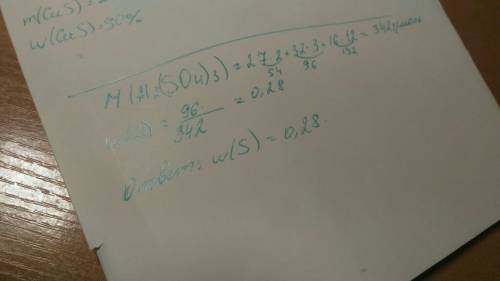 m(CuS)=
w(CuS)=90%
M(Al₂(SO₄)₃)=27·2+32·3+16·12=342г/моль
54 96 192
w(S)=96/342=0,28
Ответ: w(S)=0,28.